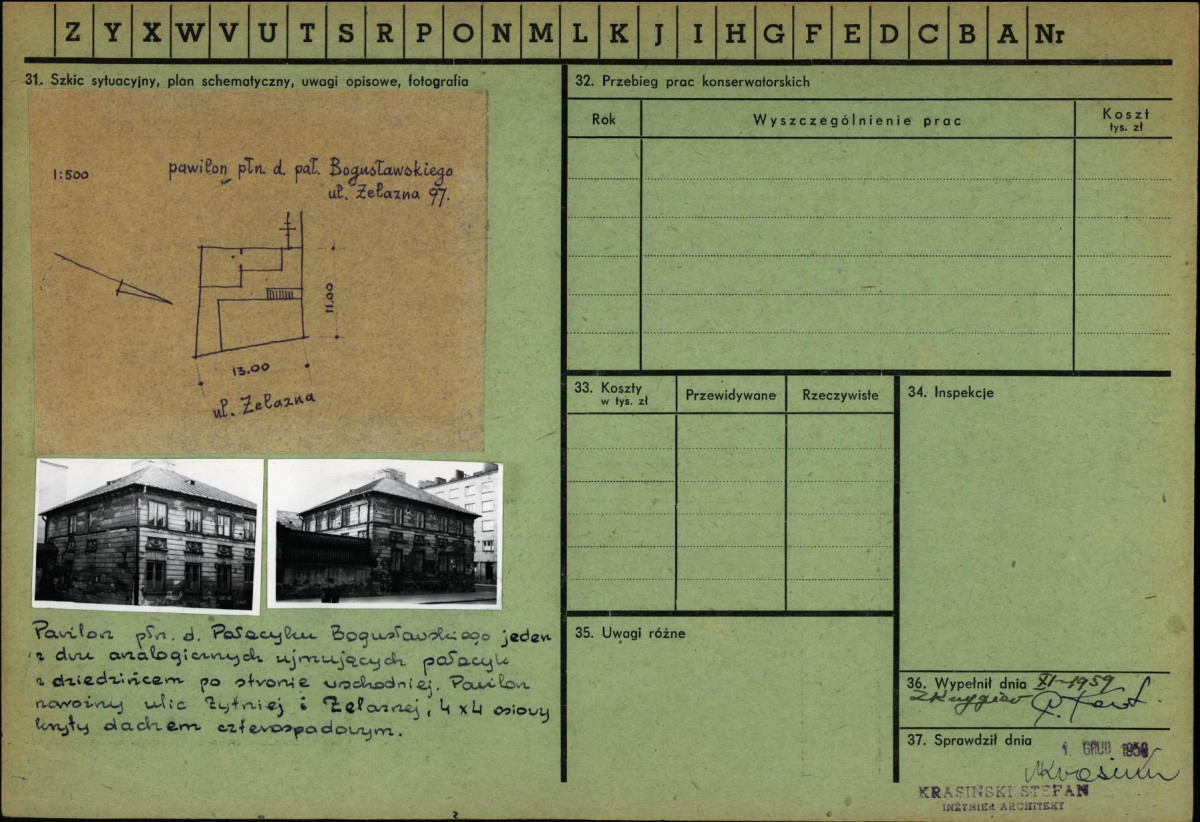 Z Y X W V U T S R P O N M L K J I H G F E D C B A Nr
31. Szkic sytuacyjny, plan schematyczny, uwagi opisowe, fotografia
1:500
pawilon płn. d. pał. Bogusławskiego
ul. Żelazna 97.
11.00
13.00
ul. Żelazna
Pawilon płn. d. Pałacyku Bogusławskiego jeden
z dwu analogicznych ujmujących pałacyk
z dziedzińcem po stronie wschodniej. Pawilon
narożny ulic Żytniej i Żelaznej, 4 x 4 osiowy
kryty dachem czterospadowym.
32. Przebieg prac konserwatorskich
Rok
Wyszczególnienie prac
Koszt
tys. zł
33. Koszty
w tys. zł
Przewidywane
Rzeczywiste
34. Inspekcje
35. Uwagi różne
36. Wypełnił dnia XI-1959
37. Sprawdził dnia
1 GRUD 1959
KRASIŃSKI STEFAN
INŻYNIER ARCHITEKT